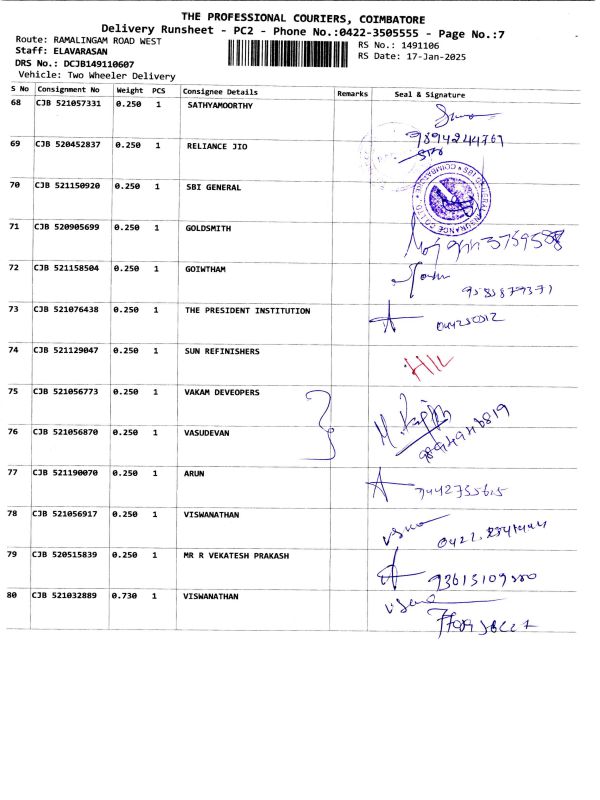 THE PROFESSIONAL COURIERS, COIMBATORE
Delivery Runsheet - PC2 - Phone No.:0422-3505555 - Page No.:7
Route: RAMALINGAM ROAD WEST
RS No.: 1491106
Staff: ELAVARASAN
RS Date: 17-Jan-2025
DRS No.: DCJB149110607
Vehicle: Two Wheeler Delivery
S No Consignment No Weight PCS Consignee Details Remarks Seal & Signature
68 CJB 521057331 0.250 1 SATHYAMOORTHY
9894244761
69 CJB 520452837 0.250 1 RELIANCE JIO
70 CJB 521150920 0.250 1 SBI GENERAL
71 CJB 520905699 0.250 1 GOLDSMITH
72 CJB 521158504 0.250 1 GOIWTHAM
73 CJB 521076438 0.250 1 THE PRESIDENT INSTITUTION
74 CJB 521129047 0.250 1 SUN REFINISHERS
75 CJB 521056773 0.250 1 VAKAM DEVEOPERS
76 CJB 521056870 0.250 1 VASUDEVAN
77 CJB 521190070 0.250 1 ARUN
78 CJB 521056917 0.250 1 VISWANATHAN
79 CJB 520515839 0.250 1 MR R VEKATESH PRAKASH
80 CJB 521032889 0.730 1 VISWANATHAN